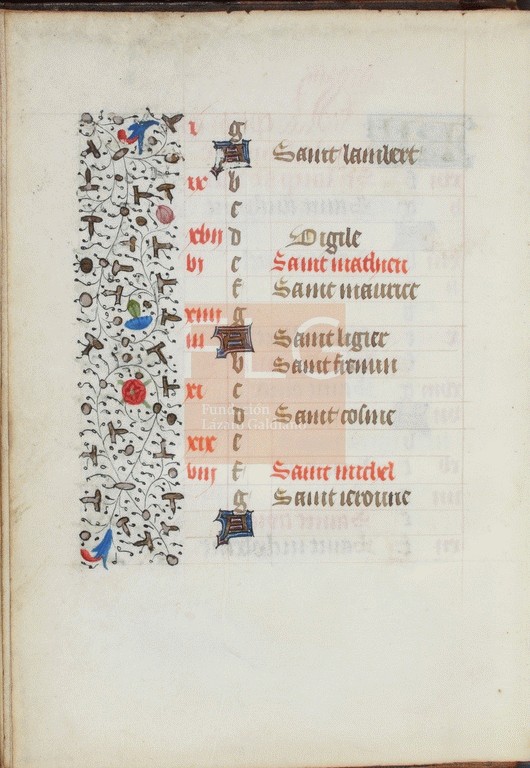 x g
A Saint lambert
b
c
xvij d Vigile
vj e Saint mathieu
f Saint maurice
xiiij g
iij A Saint ligier
b Saint fremin
xi c
d Saint cosme
xix e
viij f Saint michel
g Saint ierome
A
Fundación
Lázaro Galdiano